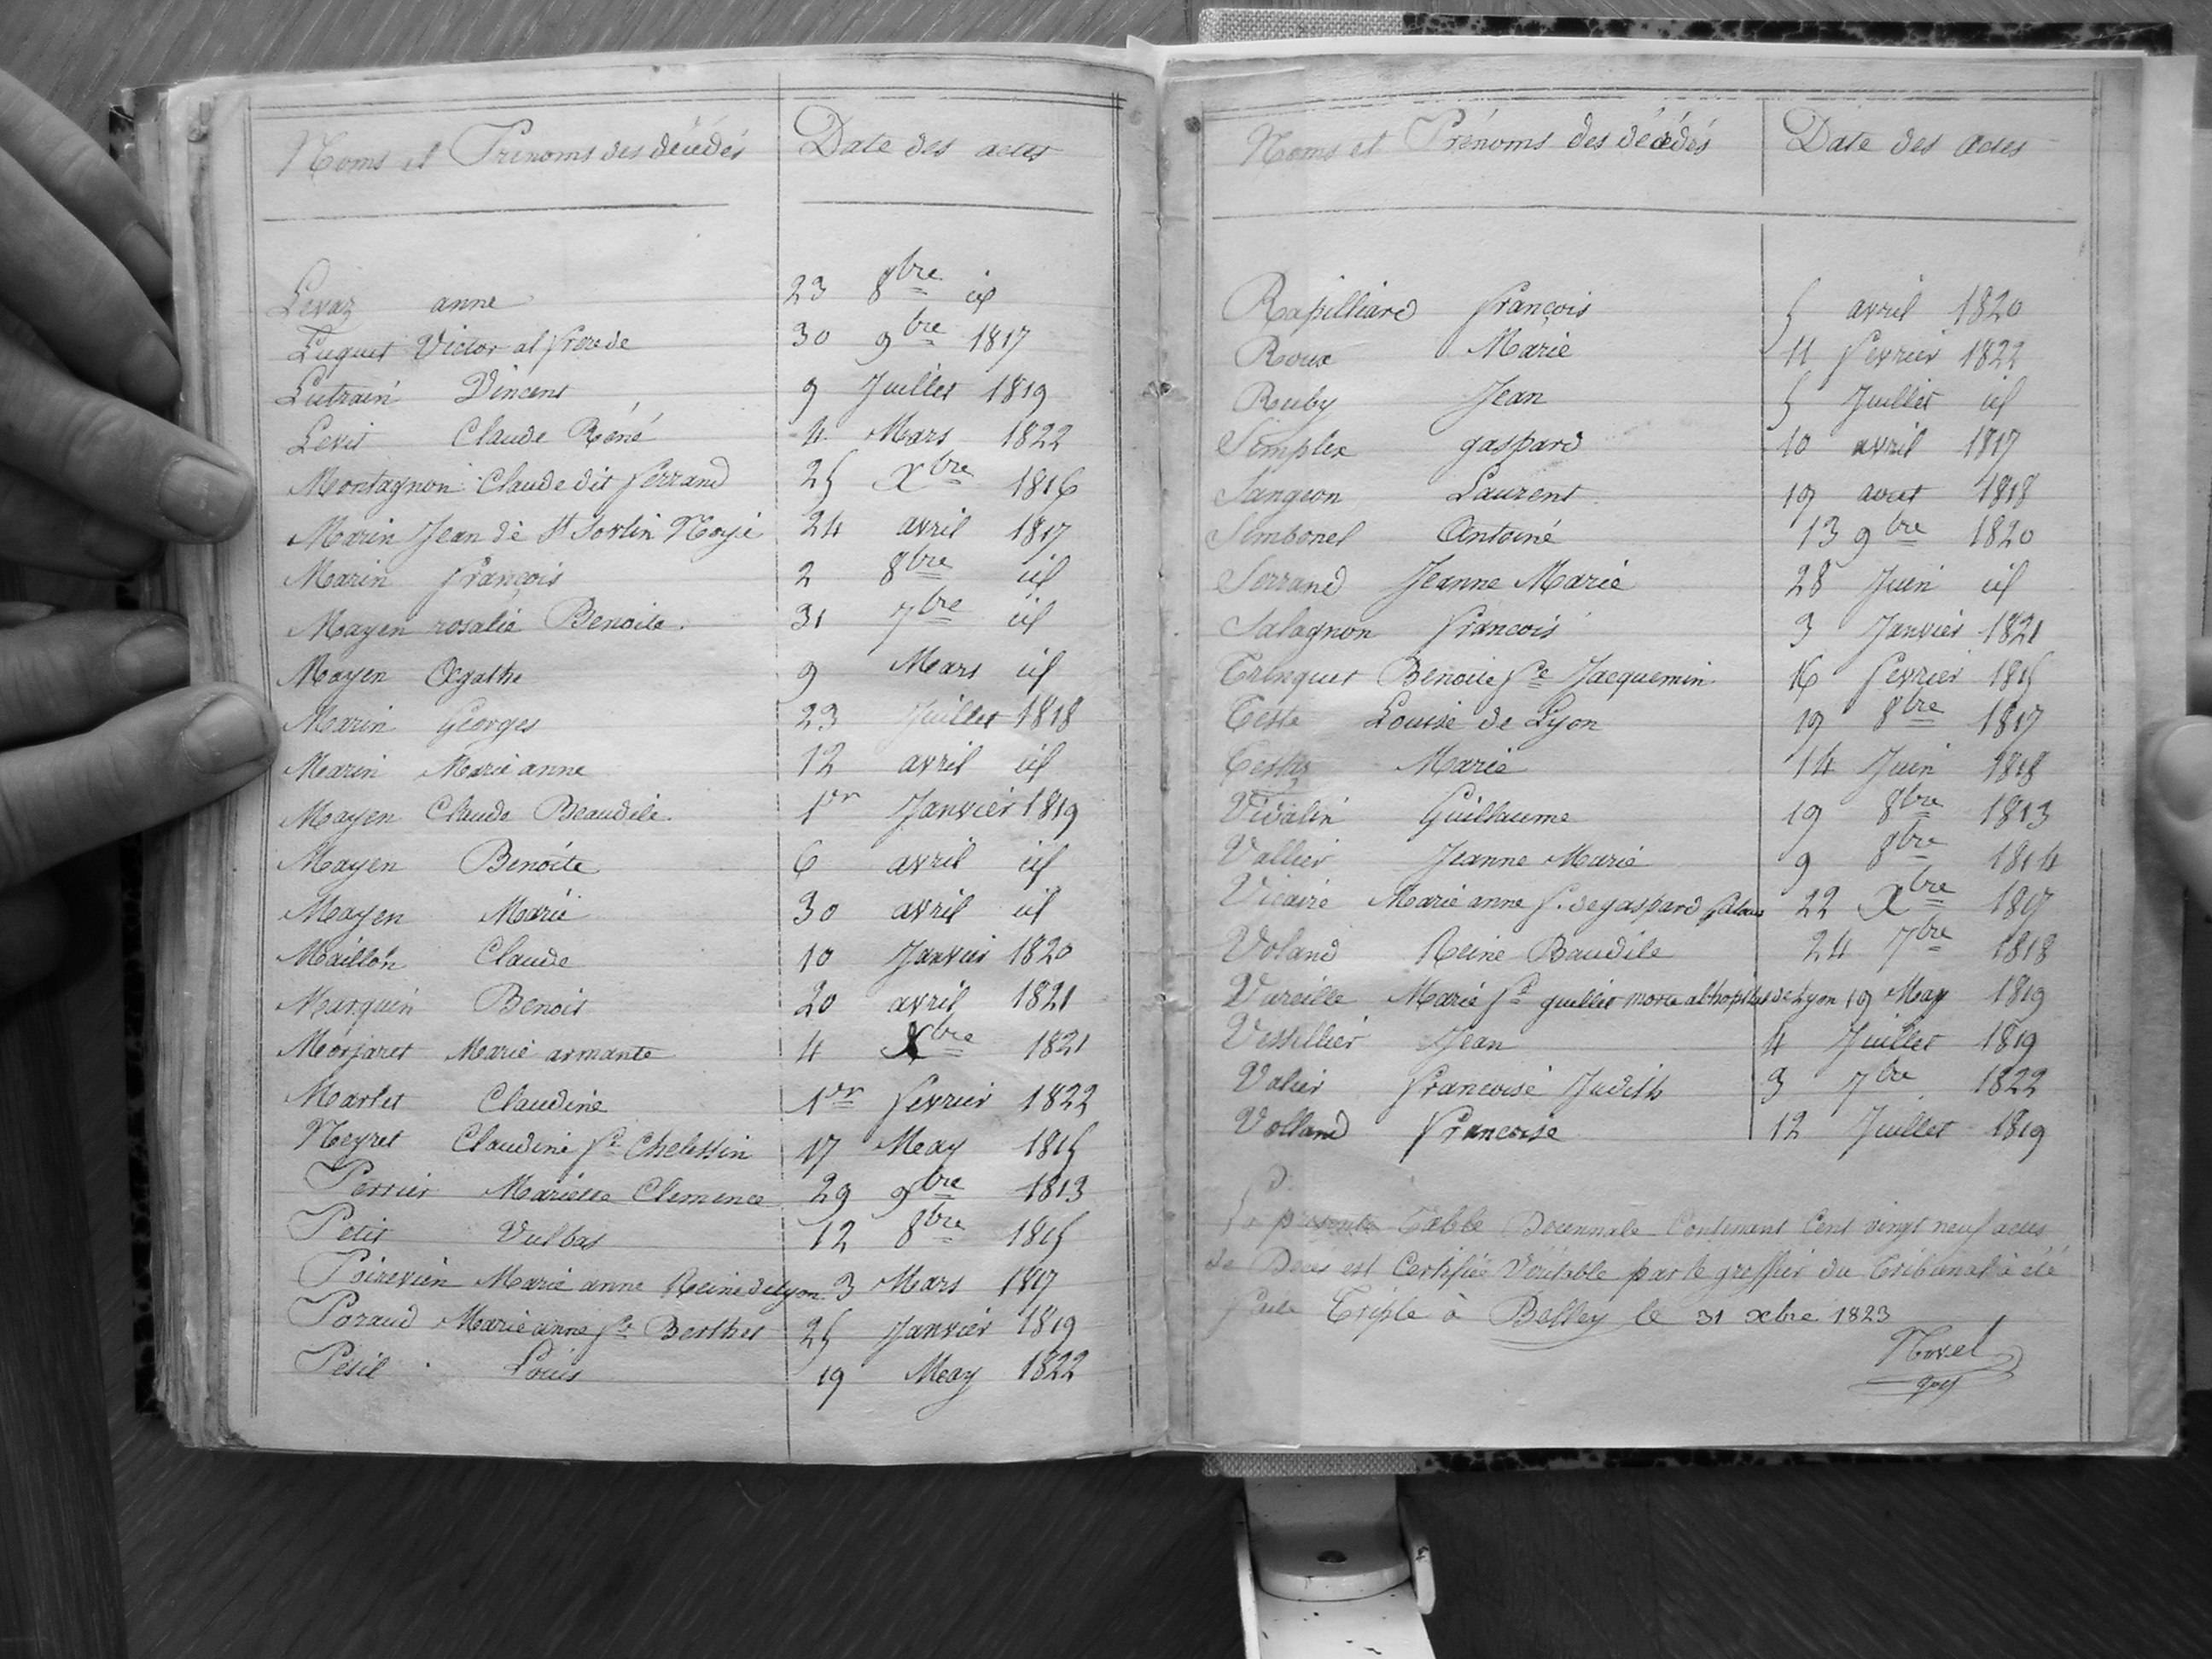 Noms et Prénoms des décédés Date des actes
Levaz anne 23 8bre id
Luquet Victor al frere de 30 9bre 1817
Lutrain Vincent 9 Juillet 1819
Levit Claude Réné 4 Mars 1822
Montagnon Claude dit ferrand 25 Xbre 1816
Marin Jean de St Sorlin Noyé 24 avril 1817
Marin françois 2 8bre id
Mayen rosalie Benoite 31 7bre id
Mayen Agathe 9 Mars id
Marin Georges 23 Juillet 1818
Marin Marie anne 12 avril id
Mayen Claude Beaudile 1er Janvier 1819
Mayen Benoite 6 avril id
Mayen Marie 30 avril id
Maillon Claude 10 Janvier 1820
Marquin Benoit 20 avril 1821
Morjaret Marie armante 4 Xbre 1821
Martet Claudine 1er fevrier 1822
Neyret Claudine fe Chelettin 17 May 1815
Perrier Mariette Clemence 29 9bre 1813
Petit Vulbas 12 8bre 1815
Poirevien Marie anne Reine de Lyon 3 Mars 1817
Poraud Marie anne fe Berthet 25 Janvier 1819
Petit Louis 19 May 1822
Noms et Prénoms des décédés Date des actes
Rapilliard françois 5 avril 1820
Roux Marie 11 fevrier 1822
Ruby Jean 5 Juillet id
Simplex gaspard 10 avril 1817
Sangeon Laurent 19 aout 1818
Simbonel Antoine 13 9bre 1820
Serrand Jeanne Marie 28 Juin id
Salagnon françois 3 Janvier 1821
Trinquet Benoite fe Jacquemin 16 fevrier 1815
Teste Louise de Lyon 19 8bre 1817
Marie 14 Juin 1818
Vidalin Guillaume 19 8bre 1813
Vallier Jeanne Marie 9 8bre 1814
Vicaire Marie anne f. de gaspard 22 Xbre 1817
Voland Reine Baudile 24 7bre 1818
Vareille Marie fe guillet morte a l'hopital de Lyon 19 May 1819
Vessillier Jean 4 Juillet 1819
Valier francoise Judith 3 7bre 1822
Volland francoise 12 Juillet 1819
La presente Table Decennale Contenant Cent vingt neuf actes
de Decés est Certifiée Véritable par le greffier du Tribunal a été
faite Triple à Belley le 31 xbre 1823
Novel
gref